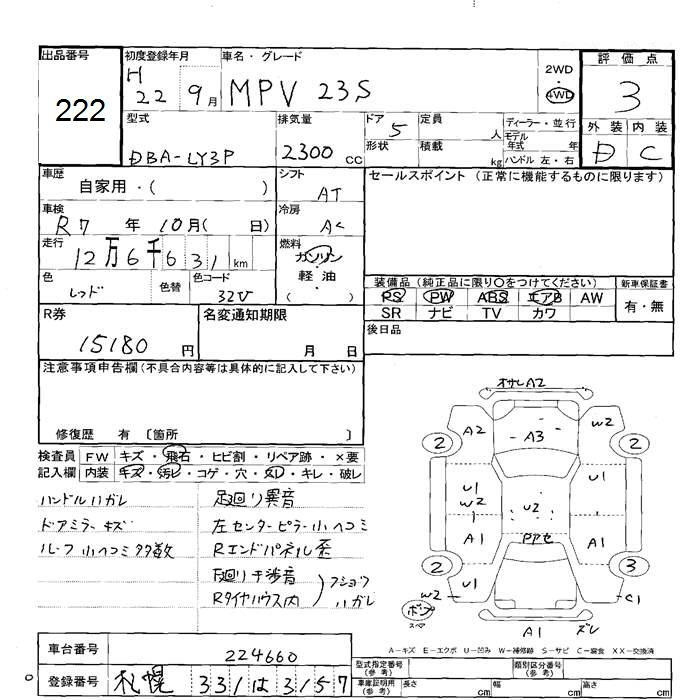 出品番号
222
初度登録年月
H 22 9月
車名・グレード
MPV 23S
2WD
・
4WD
評価点
3
外装 内装
D C
型式
DBA-LY3P
排気量
2300 cc
ドア 5
形状
定員 人
積載 kg
ディーラー・並行
モデル年式 年
ハンドル 左・右
車歴
自家用・( )
シフト
AT
セールスポイント (正常に機能するものに限ります)
車検
R7 年 10月( 日)
冷房
AC
走行
12万6千631km
燃料
ガソリン
軽・油
( )
色
レッド
色替
色コード
32V
装備品 (純正品に限り〇をつけてください)
PS PW ABS エアB AW
SR ナビ TV カワ
新車保証書
有・無
R券
15180 円
名変通知期限
月 日
後日品
注意事項申告欄(不具合内容等は具体的に記入して下さい)
修復歴 有 〔箇所 〕
検査員記入欄
FW キズ・飛石・ヒビ割・リペア跡・×要
内装 キズ・汚レ・コゲ・穴・ヌレ・キレ・破レ
ハンドルハガレ
ドアミラーキズ
ルーフ小ヘコミ多数
足廻り異音
左センターピラー小ヘコミ
Rエンドパネル歪
下廻り干渉音
Rタイヤハウス内
ハガレ
オサレA2
A2
W2
2
A3
2
U1
W2
U1
U2
A1
A1
2
3
U1
W2
C1
ボン
スペア
A1
ズレ
A-キズ E-エクボ U-凹み W-補修跡 S-サビ C-腐食 XX-交換済
車台番号
224660
登録番号
札幌 331 は 3157
型式指定番号
(参考)
類別区分番号
(参考)
車庫証明用
(参考)
長さ cm
幅 cm
高さ cm